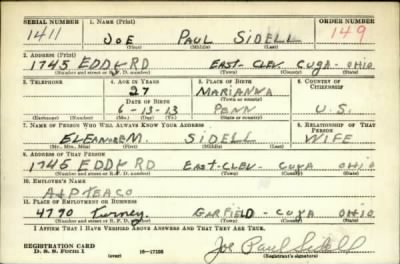 SERIAL NUMBER 1. NAME (Print) ORDER NUMBER
1411 JOE PAUL SIDELL 149
(First) (Middle) (Last)
2. ADDRESS (Print)
1745 EDDY RD EAST-CLEV CUYA- OHIO
(Number and street or R. F. D. number) (Town) (County) (State)
3. TELEPHONE 4. AGE IN YEARS 5. PLACE OF BIRTH 6. COUNTRY OF CITIZENSHIP
27 MARIANNA
DATE OF BIRTH (Town or county)
6-13-13 PENN U.S.
(Mo.) (Day) (Yr.) (State or country)
7. NAME OF PERSON WHO WILL ALWAYS KNOW YOUR ADDRESS 8. RELATIONSHIP OF THAT PERSON
ELEANORE M. SIDELL WIFE
(Mr., Mrs., Miss) (First) (Middle) (Last)
9. ADDRESS OF THAT PERSON
1745 EDDY RD EAST-CLEV- CUYA OHIO
(Number and street or R. F. D. number) (Town) (County) (State)
10. EMPLOYER'S NAME
A&P TEA CO
11. PLACE OF EMPLOYMENT OR BUSINESS
4770 Turney GARFIELD - CUYA OHIO
(Number and street or R. F. D. number) (Town) (County) (State)
I AFFIRM THAT I HAVE VERIFIED ABOVE ANSWERS AND THAT THEY ARE TRUE.
REGISTRATION CARD
D. S. S. FORM 1 (over) 16-17105 Joe Paul Sidell
(Registrant's signature)